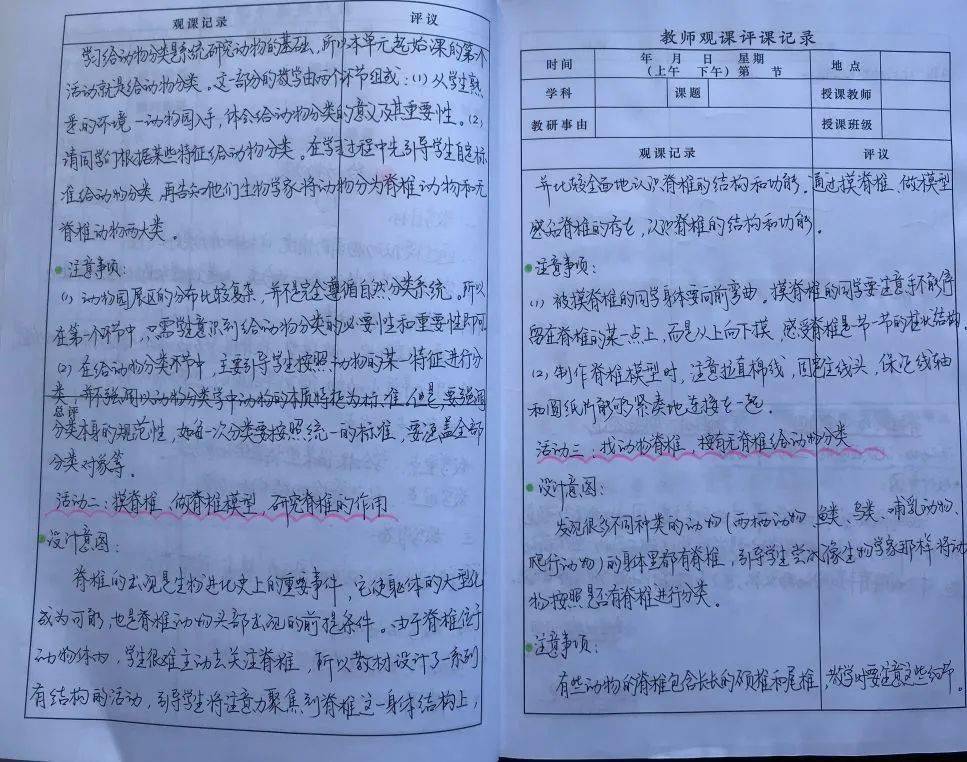 观课记录 评议
学习给动物分类是系统研究动物的基础,所以本单元起始课的第一个
活动就是给动物分类。这一部分的教学由两个环节组成:(1)从学生熟
悉的环境—动物园入手,体会给动物分类的意义及其重要性。(2)
请同学们根据某些特征给动物分类。在学习过程中先引导学生自定标
准给动物分类,再告知他们生物学家将动物分为脊椎动物和无
脊椎动物两大类。
注意事项:
(1)动物园展区的分布比较复杂,并不是完全遵循自然分类系统。所以
在第一个环节中,只需学生意识到给动物分类的必要性和重要性即可
(2)在给动物分类环节中,主要引导学生按照动物的某一特征进行分
类,并不强调以动物分类学中动物的本质特征为标准,但是,要强调
总评
分类本身的规范性,如每一次分类要按照统一的标准,要涵盖全部
分类对象等。
活动二:摸脊椎,做脊椎模型,研究脊椎的作用
设计意图:
脊椎的出现是生物进化史上的重要事件,它使躯体的大型化
成为可能,也是脊椎动物头部出现的前提条件。由于脊椎位于
动物体内,学生很难主动去关注脊椎,所以教材设计了一系列
有结构的活动,引导学生将注意力聚集到脊椎这一身体结构上,
教师观课评课记录
时间 年 月 日 星期 (上午 下午)第 节 地点
学科 课题 授课教师
教研事由 授课班级
观课记录 评议
并比较全面地认识脊椎的结构和功能。通过摸脊椎、做模型
感知脊椎的存在,认识脊椎的结构和功能。
注意事项:
(1)被摸脊椎的同学身体要向前弯曲。摸脊椎的同学要注意手不能停
留在脊椎的某一点上,而是从上向下摸,感受脊椎是一节一节的
(2)制作脊椎模型时,注意拉直棉线,固定住线头,保证线轴
和圆纸片能够紧凑地连接在一起。
活动三:找动物脊椎,按有无脊椎给动物分类
设计意图:
发现很多不同种类的动物(两栖动物、鱼类、鸟类、哺乳动物、
爬行动物)的身体里都有脊椎,引导学生尝试像生物学家那样将动
物按照是否有脊椎进行分类。
注意事项:
有些动物的脊椎包含长长的颈椎和尾椎,教学时要注意这些细节。